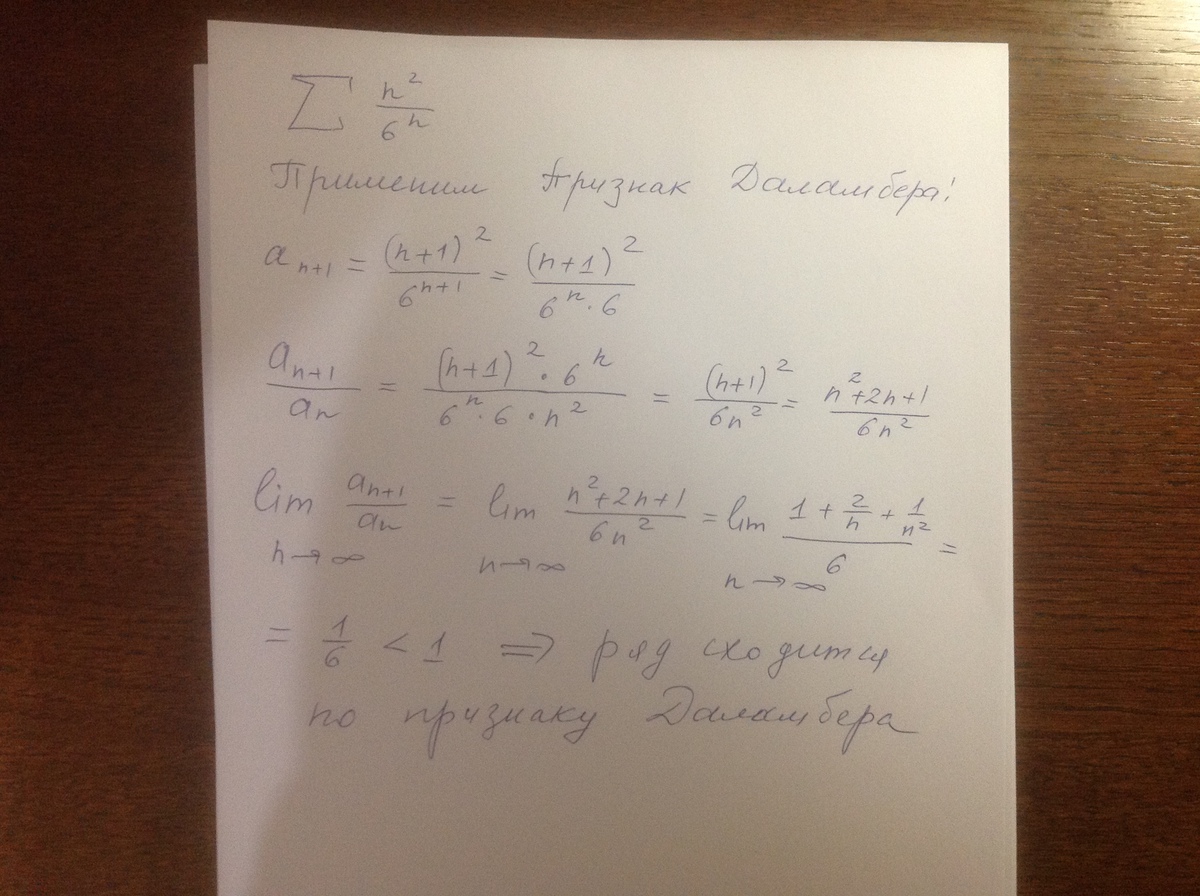 ∑ n²/6ⁿ
Применим признак Даламбера:
aₙ₊₁ = (n+1)²/6ⁿ⁺¹ = (n+1)²/(6ⁿ·6)
aₙ₊₁/aₙ = ((n+1)²·6ⁿ)/(6ⁿ·6·n²) = (n+1)²/6n² = (n²+2n+1)/6n²
lim n→∞ aₙ₊₁/aₙ = lim n→∞ (n²+2n+1)/6n² = lim n→∞ (1 + 2/n + 1/n²)/6 =
= 1/6 < 1 ⇒ ряд сходится
по признаку Даламбера